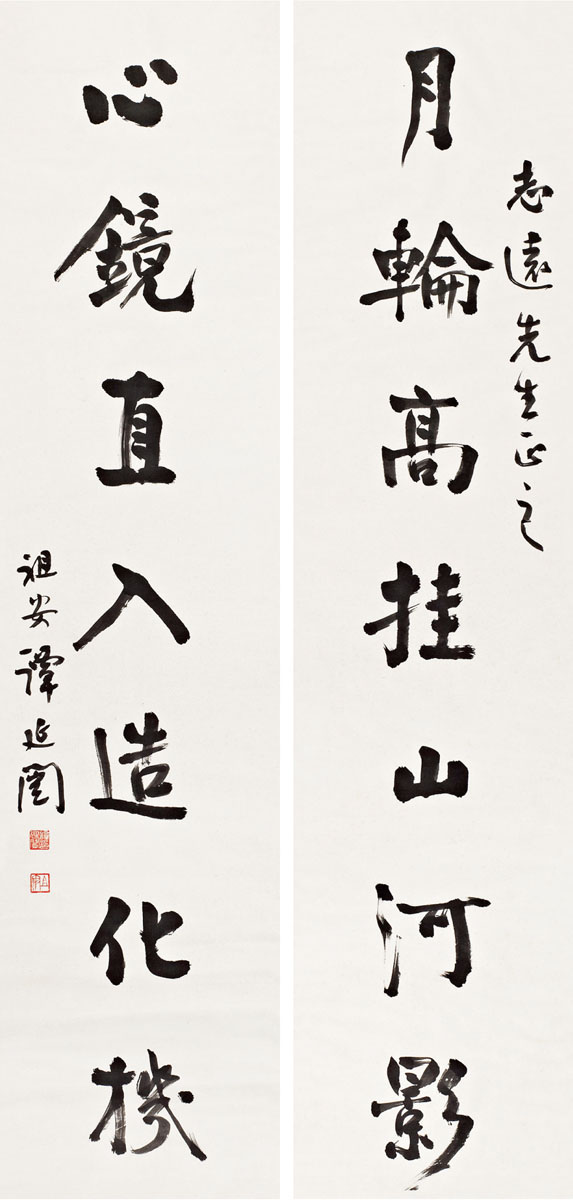 志遠先生正之
月輪高挂山河影
心鏡直入造化機
祖安譚延闓